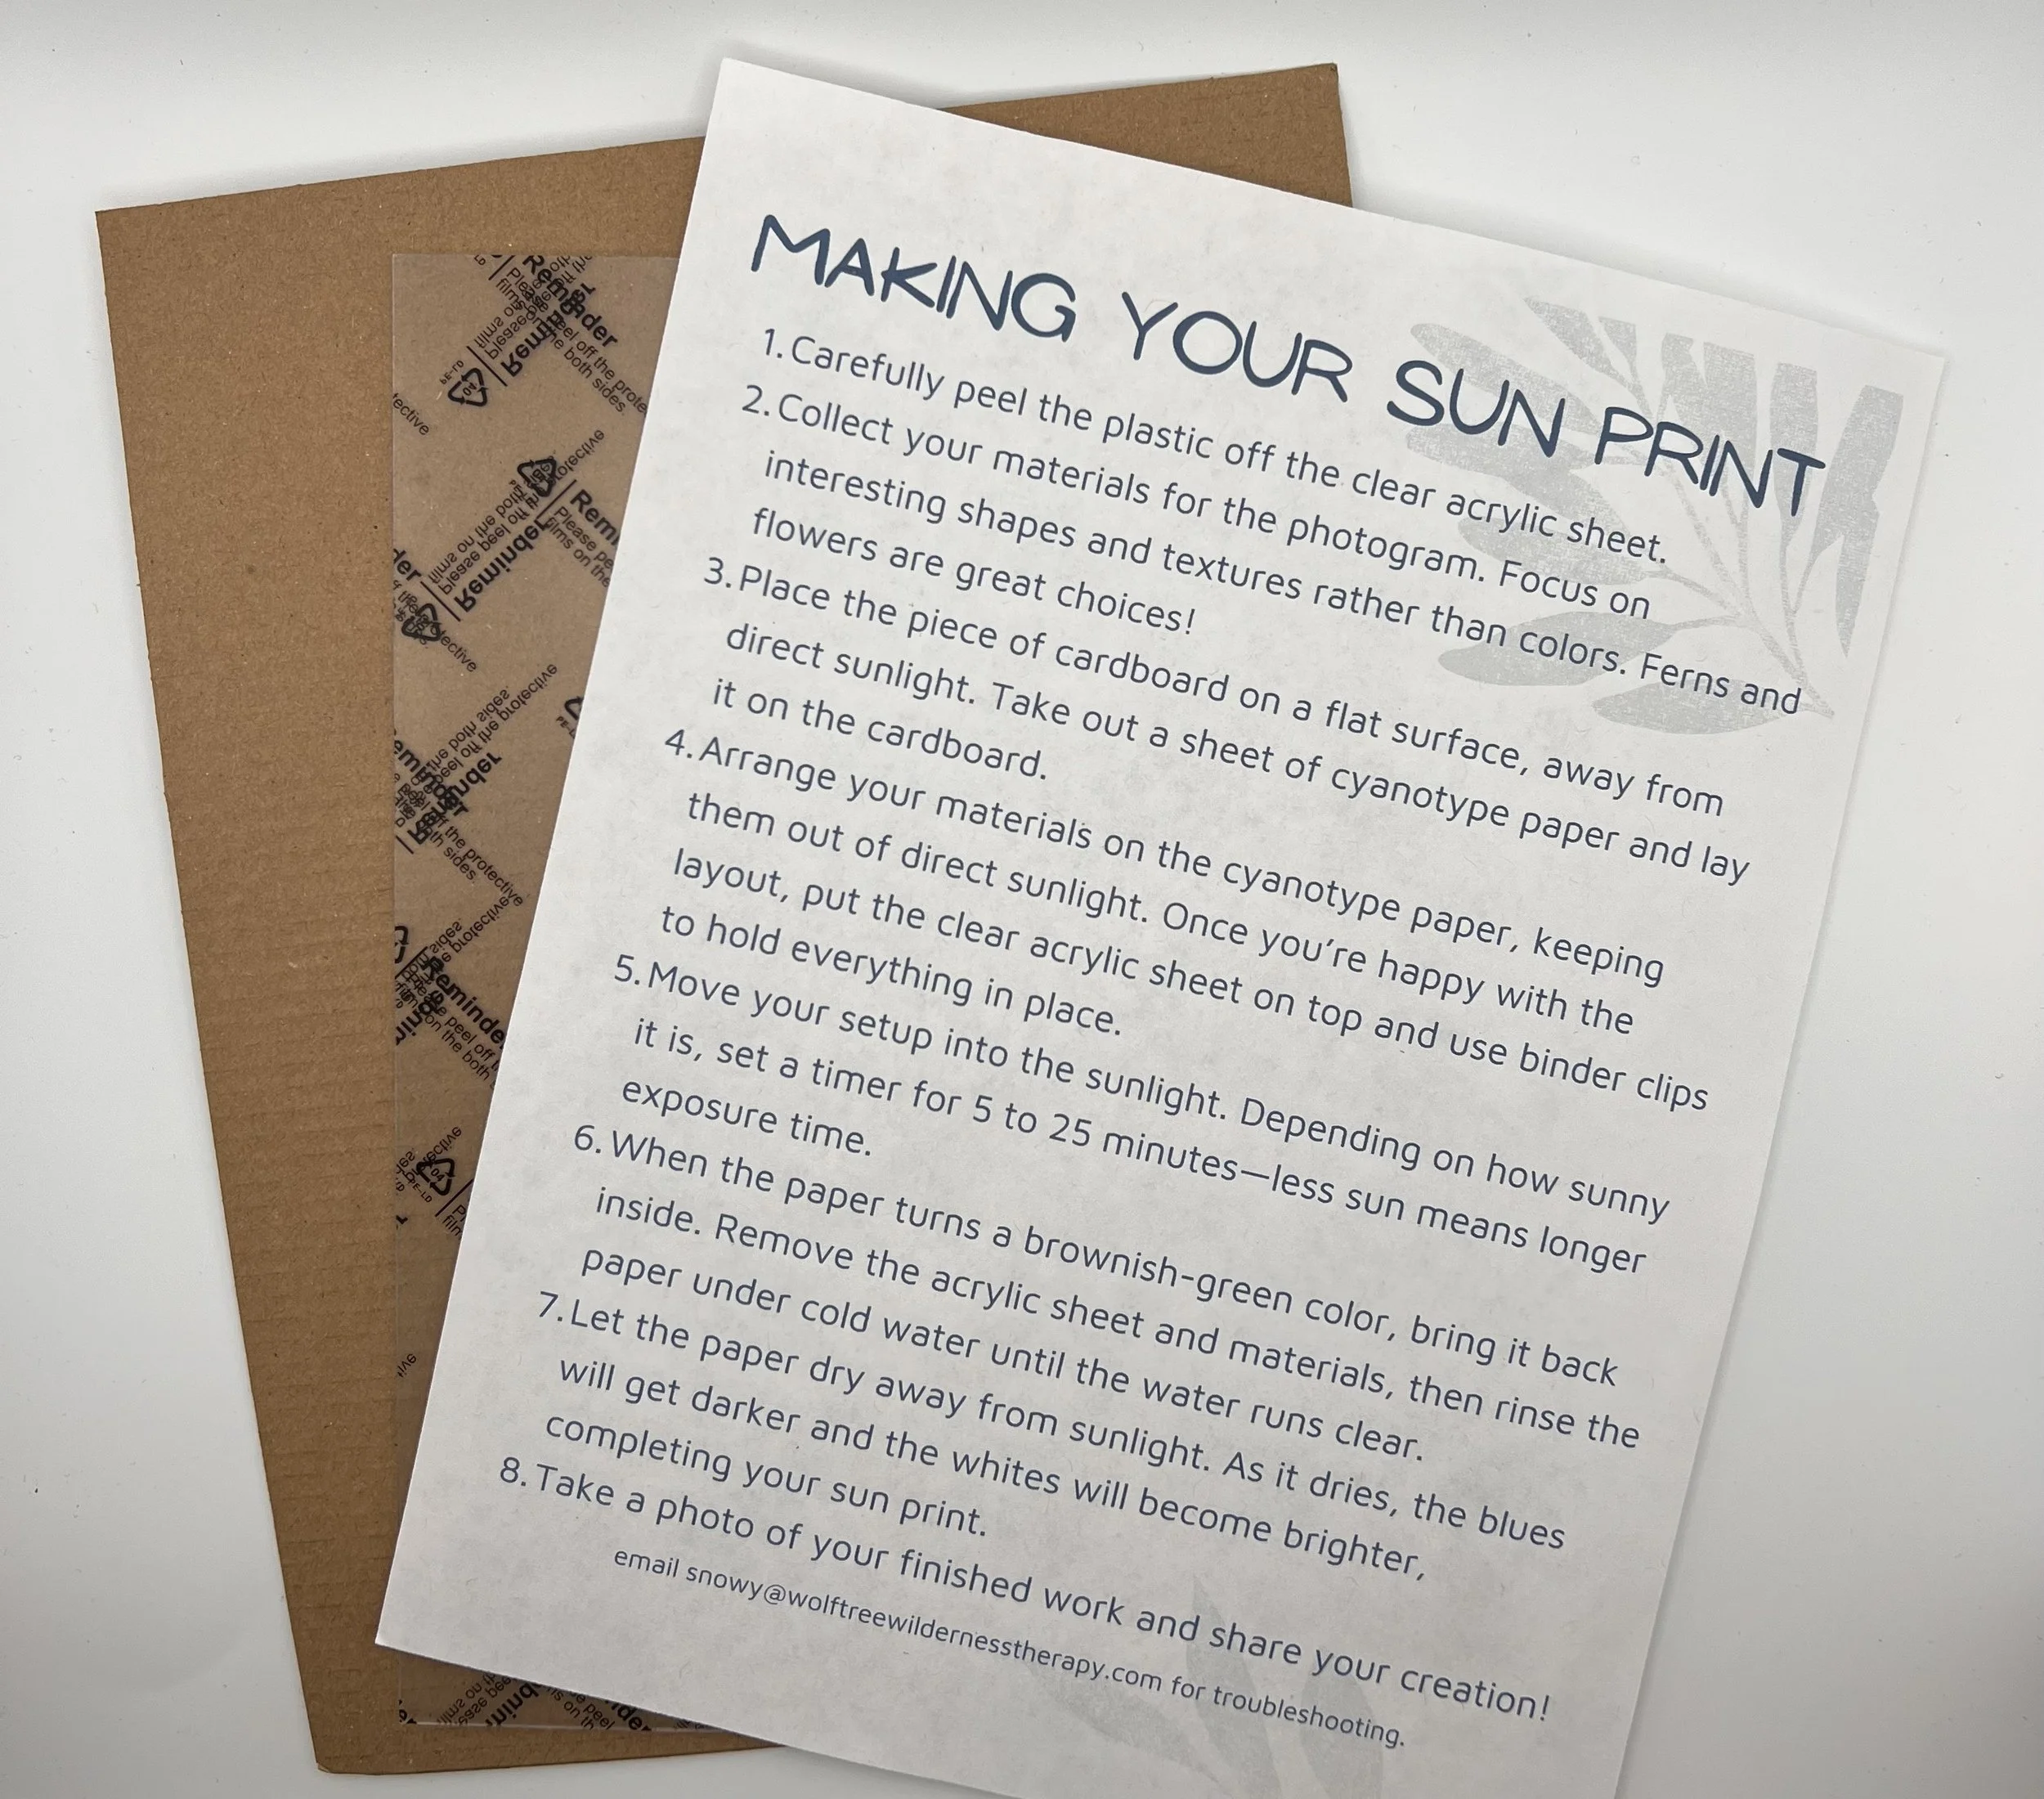 MAKING YOUR SUN PRINT
1. Carefully peel the plastic off the clear acrylic sheet.
2. Collect your materials for the photogram. Focus on
interesting shapes and textures rather than colors. Ferns and
flowers are great choices!
3. Place the piece of cardboard on a flat surface, away from
direct sunlight. Take out a sheet of cyanotype paper and lay
it on the cardboard.
4. Arrange your materials on the cyanotype paper, keeping
them out of direct sunlight. Once you're happy with the
layout, put the clear acrylic sheet on top and use binder clips
to hold everything in place.
5. Move your setup into the sunlight. Depending on how sunny
it is, set a timer for 5 to 25 minutes—less sun means longer
exposure time.
6. When the paper turns a brownish-green color, bring it back
inside. Remove the acrylic sheet and materials, then rinse the
paper under cold water until the water runs clear.
7. Let the paper dry away from sunlight. As it dries, the blues
will get darker and the whites will become brighter,
completing your sun print.
8. Take a photo of your finished work and share your creation!
email snowy@wolftreewildernesstherapy.com for troubleshooting.
Reminder
Please peel off the
films on the both sides.